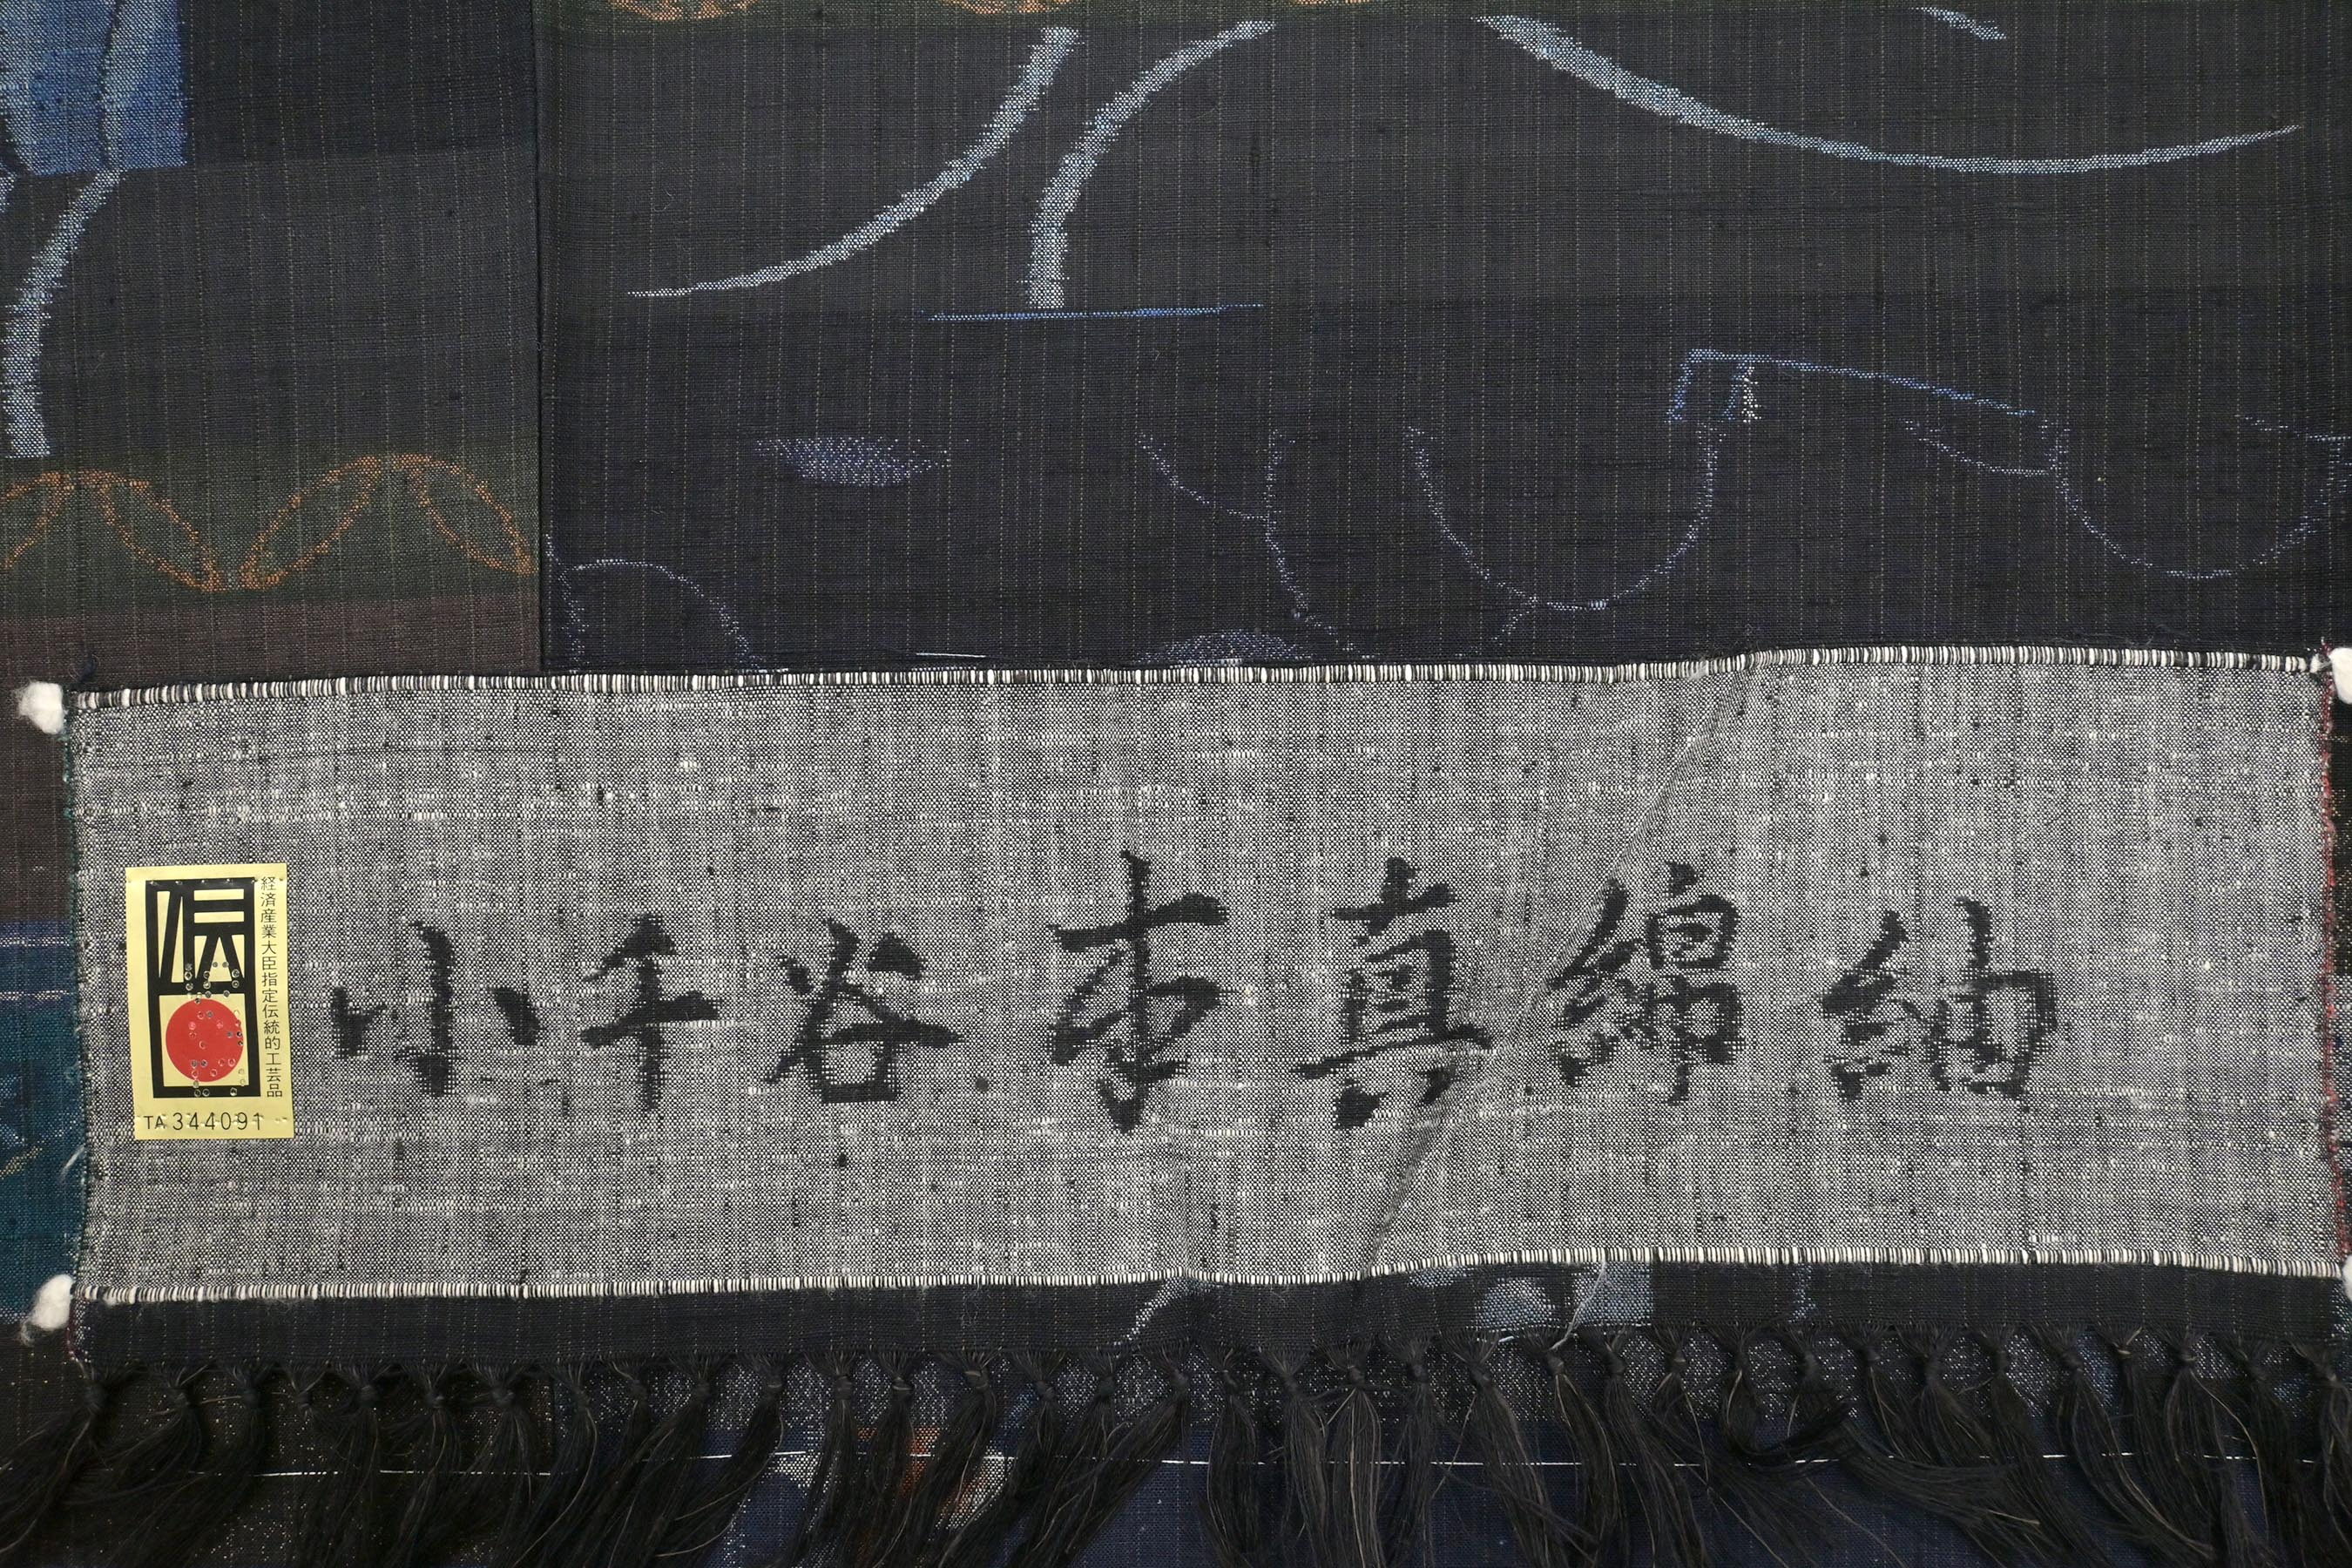 伝
経済産業大臣指定伝統的工芸品
TA 344091
小千谷本真綿紬